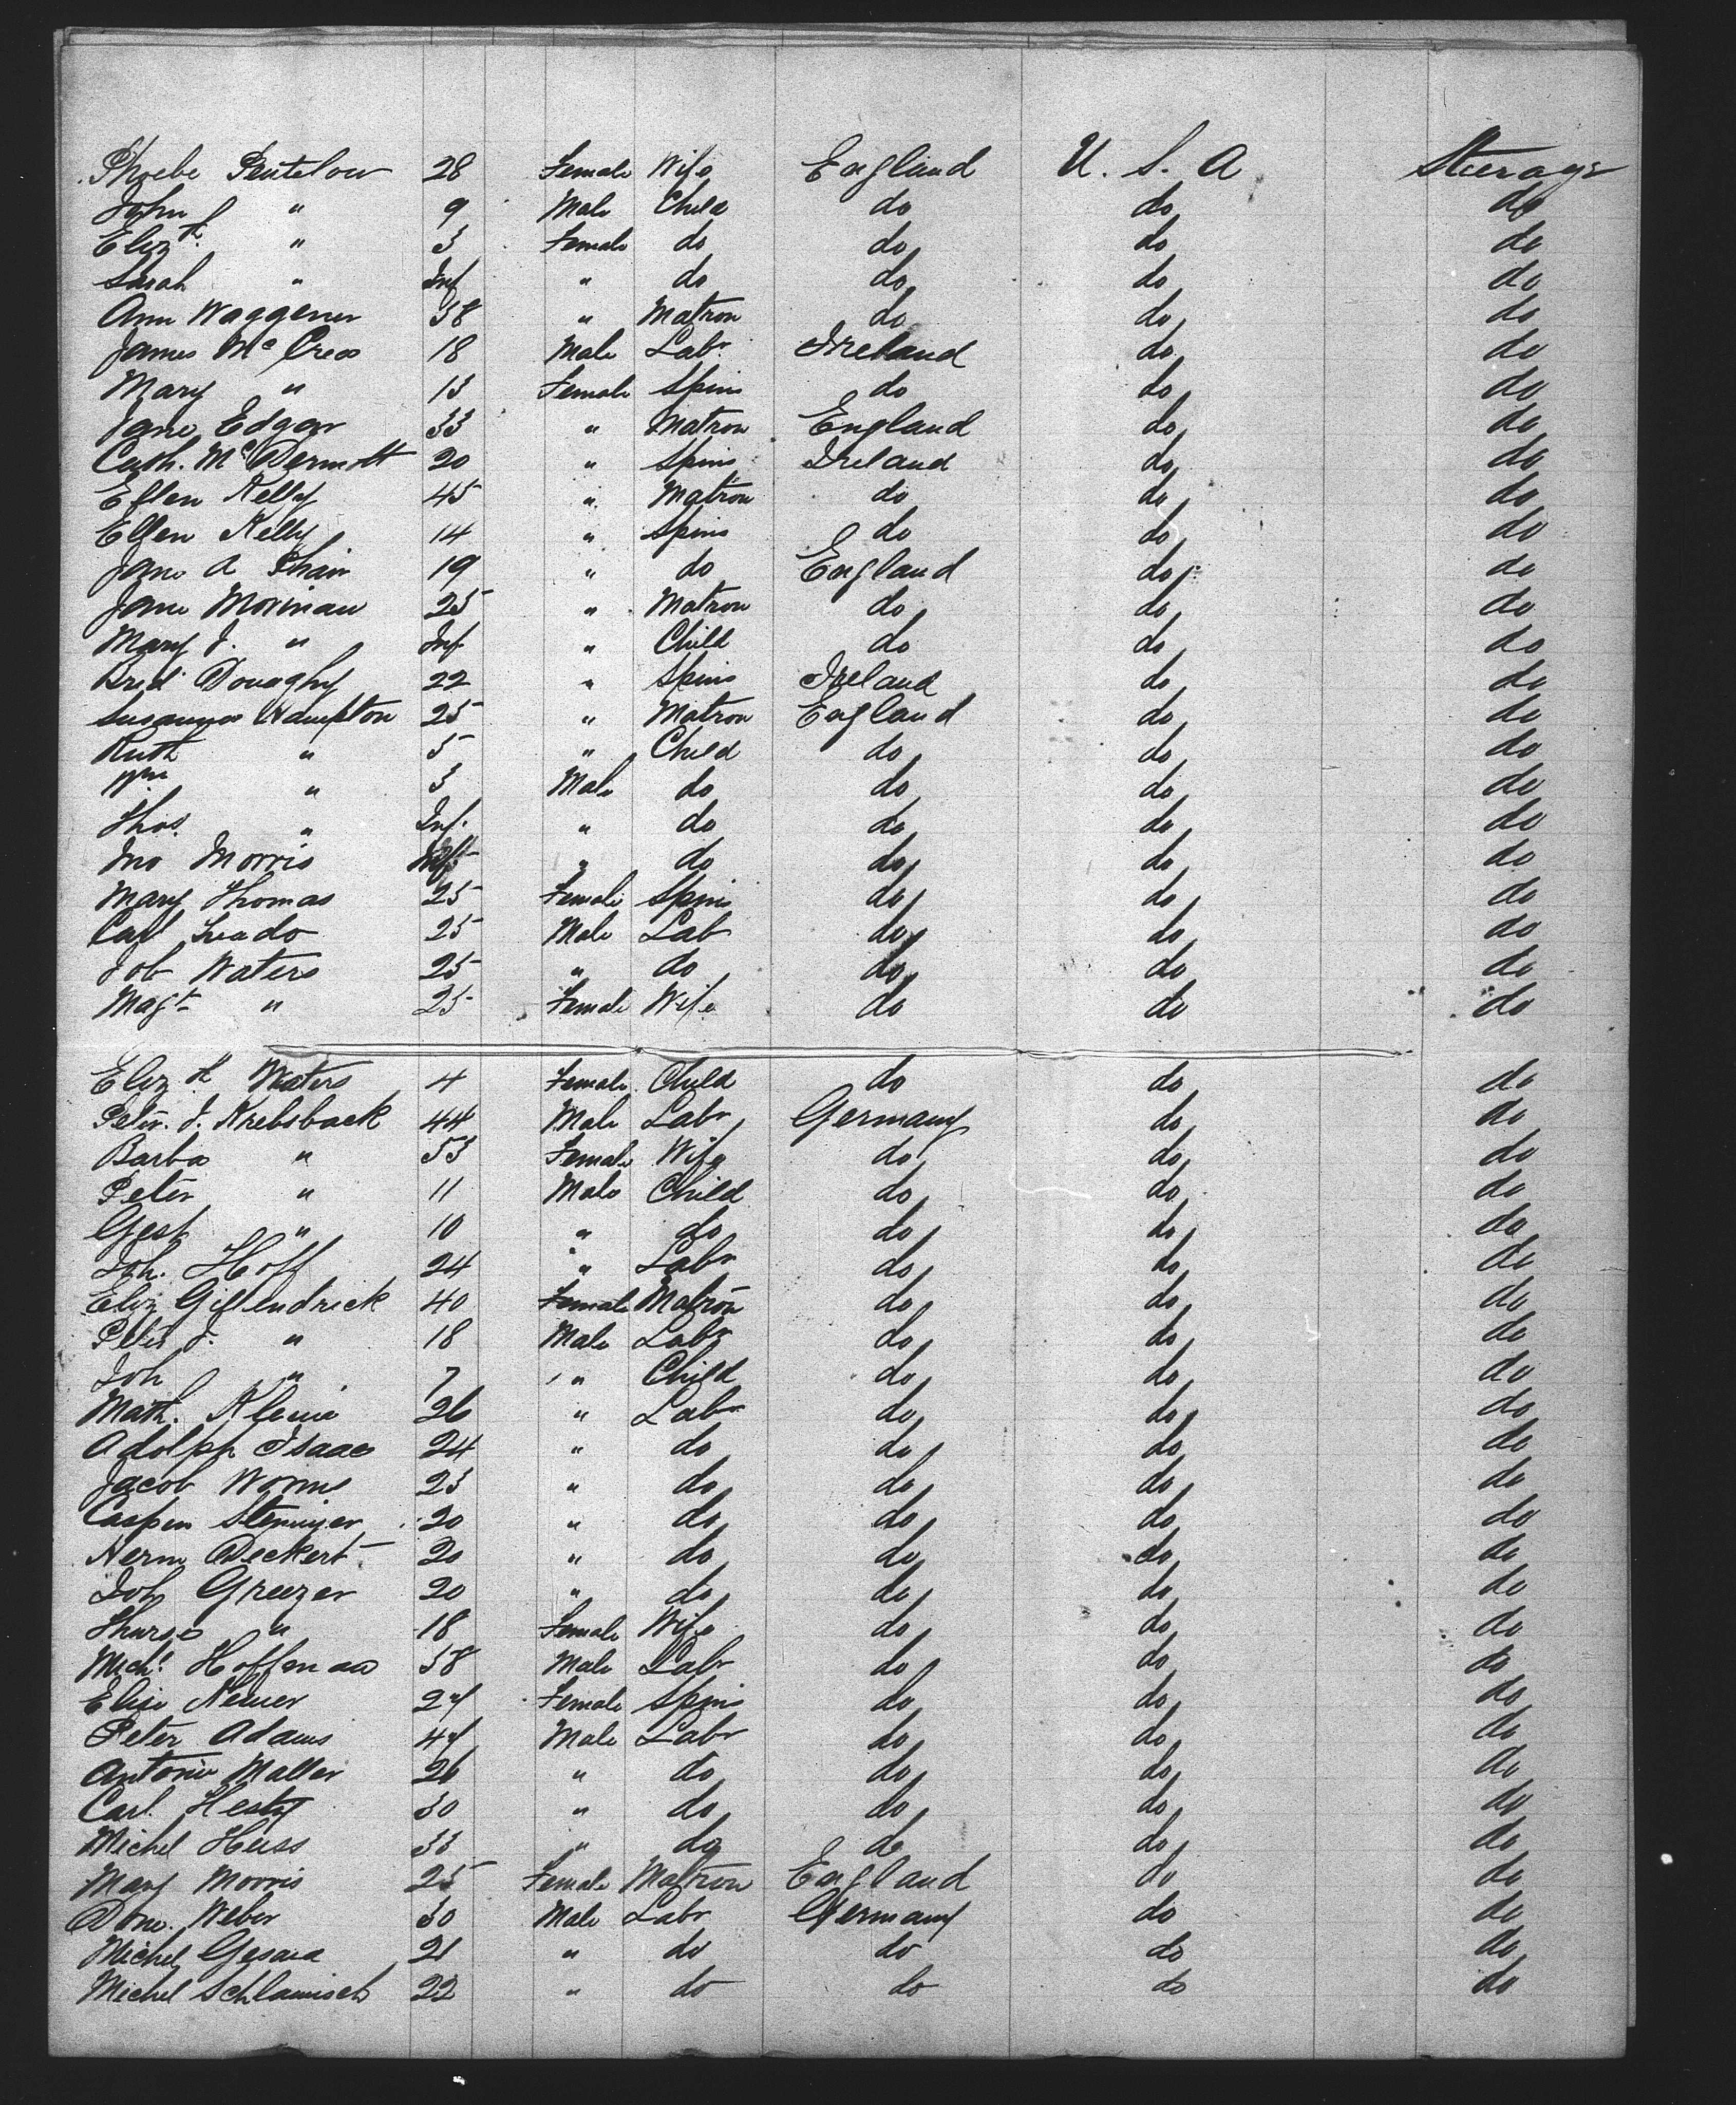 Phoebe Pentelow 28 Female Wife England U. S. A Steerage
John " 9 Male Child do do do
Elizth " 3 Female do do do do
Sarah " Inf " do do do do
Ann Waggener 38 " Matron do do do
James McCrea 18 Male Labr Ireland do do
Mary " 13 Female Spins do do do
Jane Edgar 33 " Matron England do do
Cath. McDermott 20 " Spins Ireland do do
Ellen Kelly 45 " Matron do do do
Ellen Kelly 14 " Spins do do do
Jane A 19 " do England do do
Jane 25 " Matron do do do
Mary J. " Inf " Child do do do
Brid 22 " Spins Ireland do do
Susanna Hampton 25 " Matron England do do
Ruth " 5 " Child do do do
Wm " 3 Male do do do do
Thos. " Inf. " do do do do
Jno Morris Inft " do do do do
Mary Thomas 25 Female Spins do do do
Carl 25 Male Lab do do do
Job Waters 25 " do do do do
Magt " 25 Female Wife do do do
Elizth Waters 4 Female Child do do do
Peter J. Krebsback 44 Male Labr Germany do do
Barba " 53 Female Wife do do do
Peter " 11 Male Child do do do
" 10 " do do do do
Joh. Hoff 24 " Labr do do do
Eliz Gillendrick 40 Female Matron do do do
Peter J. " 18 Male Labr do do do
Joh " 7 " Child do do do
Math. Kleine 26 " Labr do do do
Adolph Isaac 24 " do do do do
Jacob Worms 23 " do do do do
Casper 20 " do do do do
Herm Deckert 20 " do do do do
Joh Greezer 20 " do do do do
" 18 Female Wife do do do
Michl Hoffman 38 Male Labr do do do
Elise 24 Female Spins do do do
Peter Adams 44 Male Labr do do do
Antoni Maller 26 " do do do do
Carl Hesty 30 " do do do do
Michel Heiss 33 " do do do do
Mary Morris 25 Female Matron England do do
Dom. Weber 30 Male Labr Germany do do
Michel 21 " do do do do
Michel Schlamisch 22 " do do do do